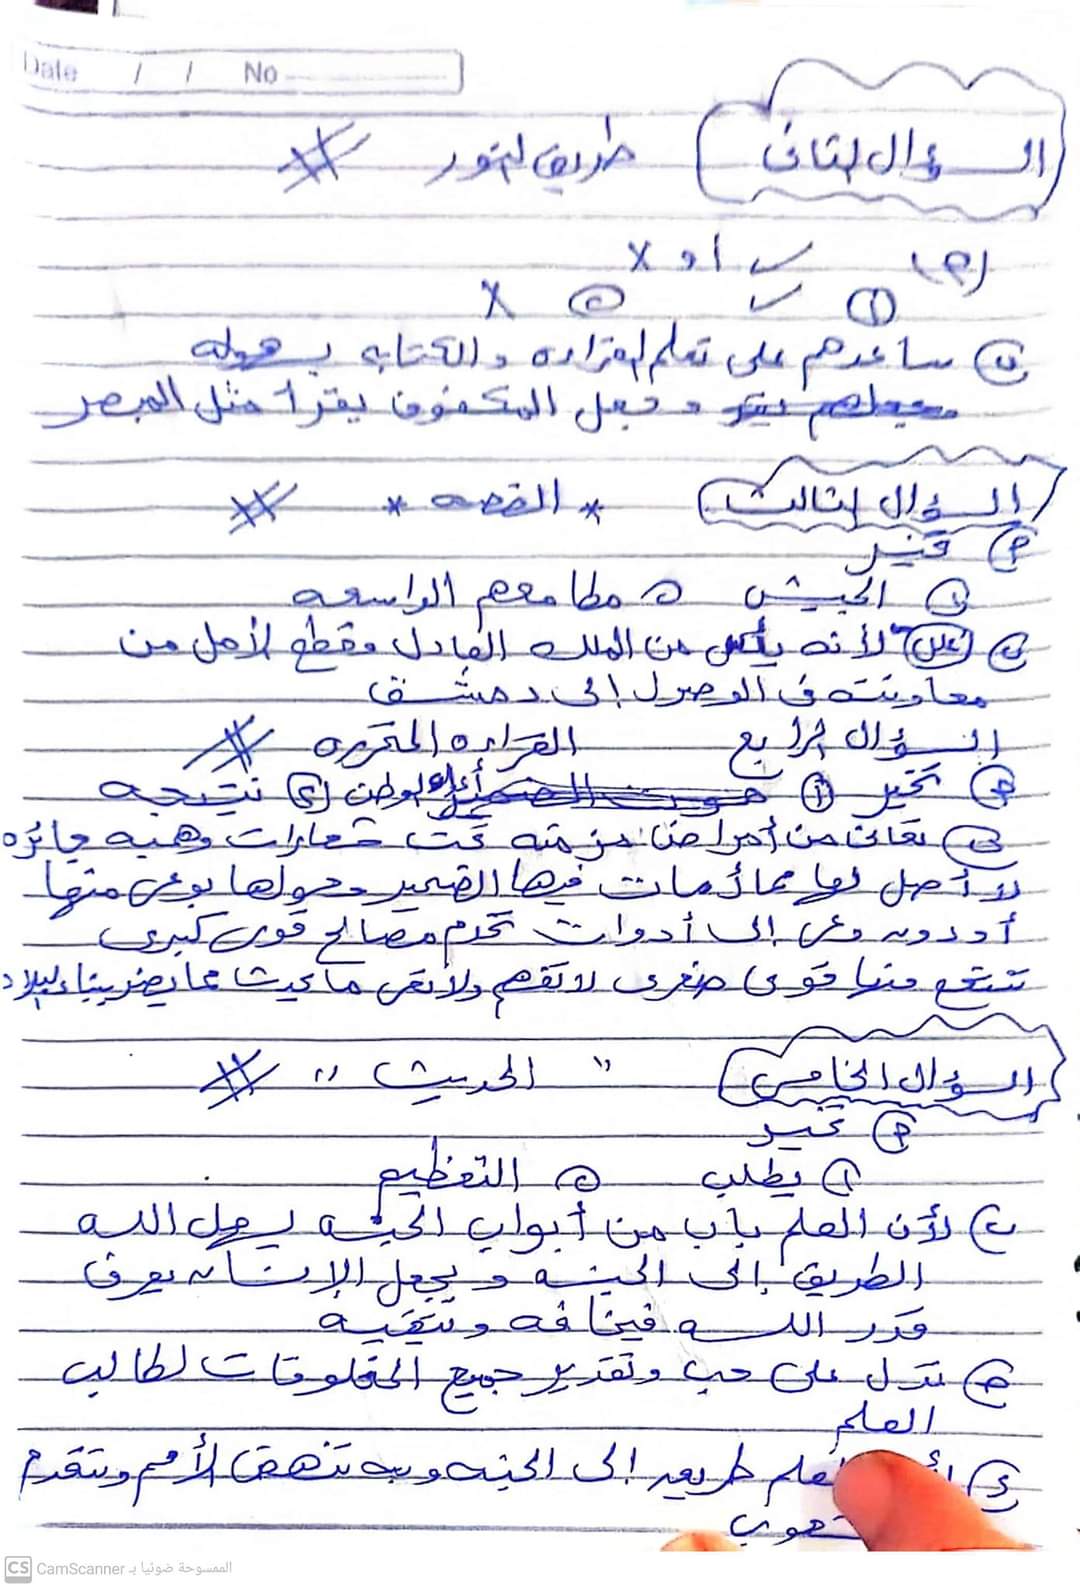 Date / / No
السؤال الثانى طريق النور
(م) ✓ أو X
① ✓ ② X
ب ساعدهم على تعلم القراءه والكتابه بسهوله
وجعل المكفوف يقرأ مثل المبصر
السؤال الثالث * القصه *
م تخير
① الجيش ② مطامعهم الواسعه
ب علل لأنه يأس من الملك العادل وقطع الأمل من
معاونته فى الوصول إلى دمشق
السؤال الرابع القراءه المتحرره
م تخير ① أعداء الوطن ② نتيجه
ب تعانى من أمراض مزمنه تحت شعارات وهميه جائره
لا أصل لها ممارسات فيها الضمير وحولها بوعى منها
أو دون وعى إلى أدوات تخدم مصالح قوى كبرى
تنتفع منها قوى صغرى لا تفهم ولا تعى ما يحدث مما يضر ببناء البلاد
السؤال الخامس " الحديث "
م تخير
① يطلب ② التعظيم
ب لأن العلم باب من أبواب الجنه يسهل الله
الطريق إلى الجنه ويجعل الإنسان يعرف
قدر الله فيخافه ويتقيه
ج تدل على حب وتقدير جميع المخلوقات لطالب
العلم
د طريق إلى الجنه وبه تنهض الأمم وتتقدم
CS CamScanner الممسوحة ضوئيا بـ